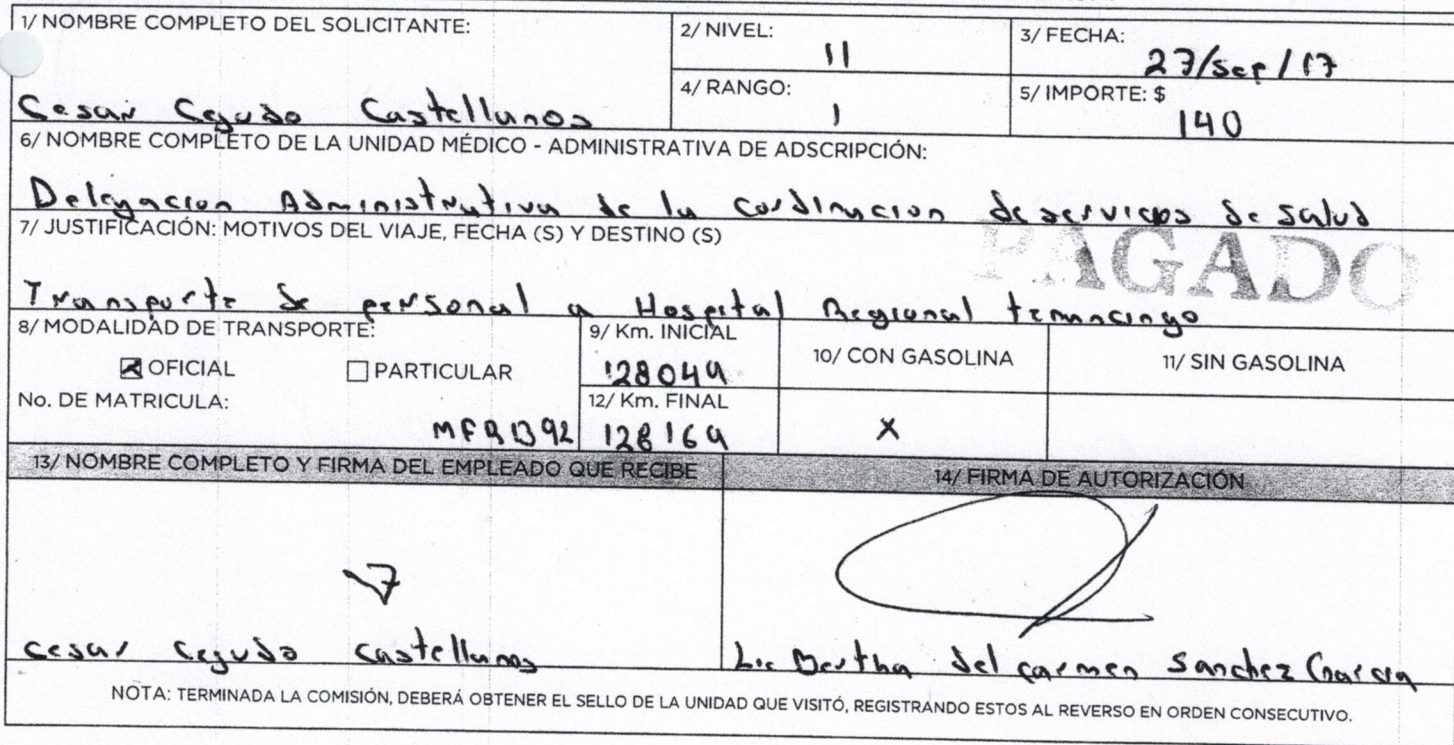 1/ NOMBRE COMPLETO DEL SOLICITANTE:
Cesar Cegudo Castellanos
2/ NIVEL:
11
3/ FECHA:
27/sep/17
4/ RANGO:
1
5/ IMPORTE: $
140
6/ NOMBRE COMPLETO DE LA UNIDAD MÉDICO - ADMINISTRATIVA DE ADSCRIPCIÓN:
Delegacion Administrativa de la cordinacion de servicios de salud
7/ JUSTIFICACIÓN: MOTIVOS DEL VIAJE, FECHA (S) Y DESTINO (S)
PAGADO
Transporte de personal a Hospital Regional tenancingo
8/ MODALIDAD DE TRANSPORTE:
OFICIAL
PARTICULAR
No. DE MATRICULA:
MFR1392
9/ Km. INICIAL
128049
12/ Km. FINAL
128169
10/ CON GASOLINA
X
11/ SIN GASOLINA
13/ NOMBRE COMPLETO Y FIRMA DEL EMPLEADO QUE RECIBE
cesar cegudo castellanos
14/ FIRMA DE AUTORIZACIÓN
Lic Bertha del carmen Sanchez Garcia
NOTA: TERMINADA LA COMISIÓN, DEBERÁ OBTENER EL SELLO DE LA UNIDAD QUE VISITÓ, REGISTRANDO ESTOS AL REVERSO EN ORDEN CONSECUTIVO.